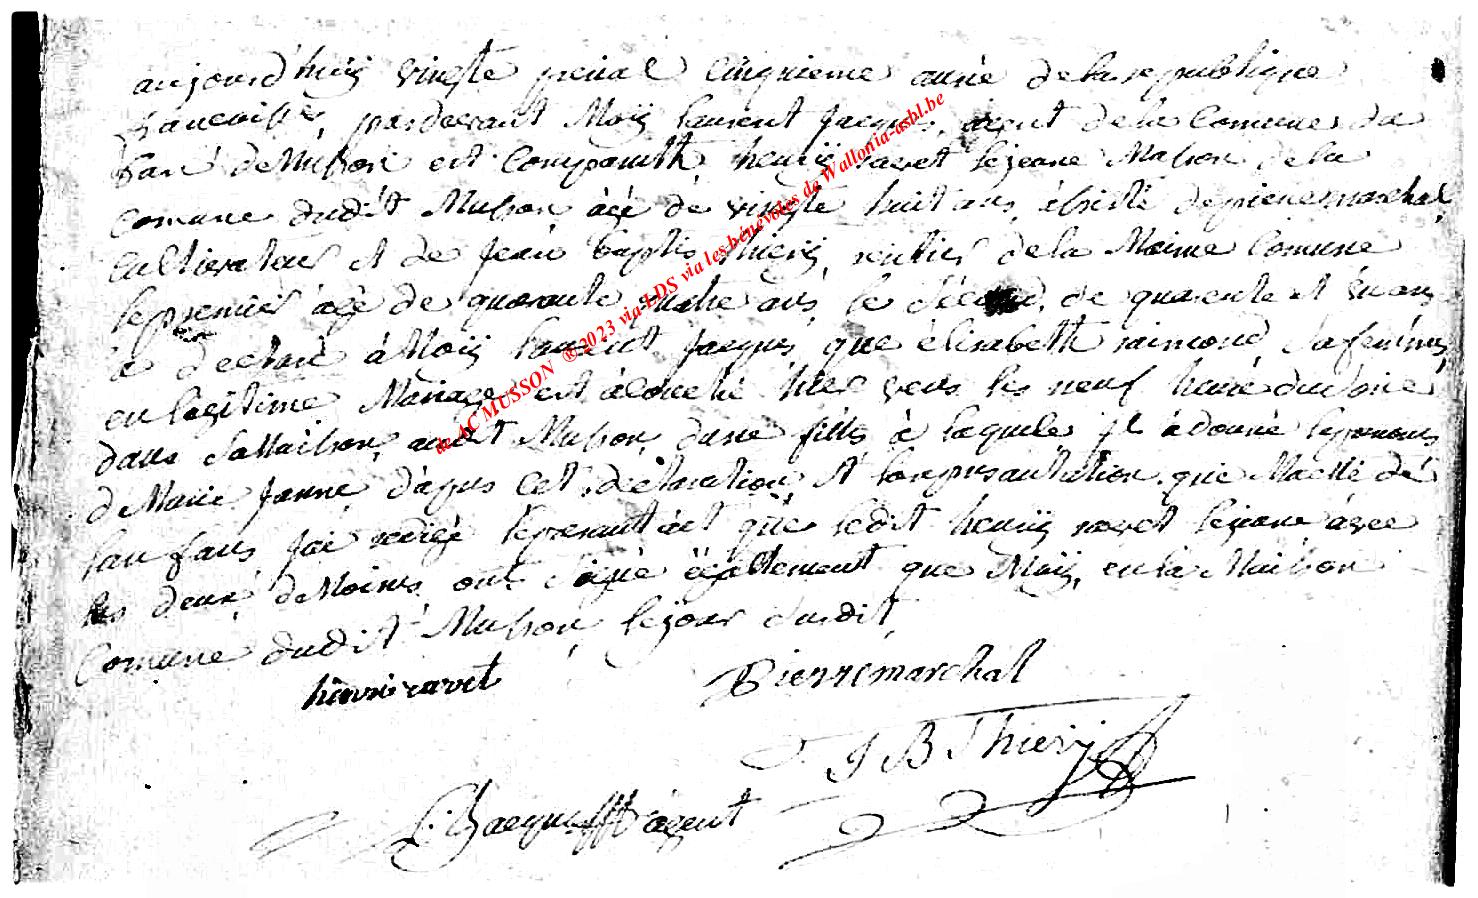 aujourd'huiÿ vingte preïial cinquieme année de la republique
francoise, pardevant Moÿ laurent Jacques, agent de la Comune du
ban de Musson est Comparuth henrÿ ravet lejeane Masson de la
comune dudit Musson âgé de vingte huit ans, assisté de pierre marchal
Cultivateur et de Jean baptis thierÿ, rentier de la Meime Comune
le premier âgé de quarante quatre ans, le second, de quarente et un ans
a declaré à Moÿ laurent Jacques que élisabeth raimond sa femme
en legitime Mariage est acouché hier vers les neuf heure du soire
dans sa Maison, audit Musson, dune fille à laquele il à donné les prenoms
de Marie Janne d'apres cet déclaration et la representation que Matté dé
lanfans, Jai redigé le present act que ledit henrÿ ravet lejeane avec
les deux deMoins ont signé egallement que Moÿ, en la Maison
Comune dudit Musson, le jour susdit,
henri ravet
Pierre marchal
J B Thierÿ
L. Jacques agent
de AC MUSSON ®2023 via LDS via les bénévoles de Wallonia-asbl.be